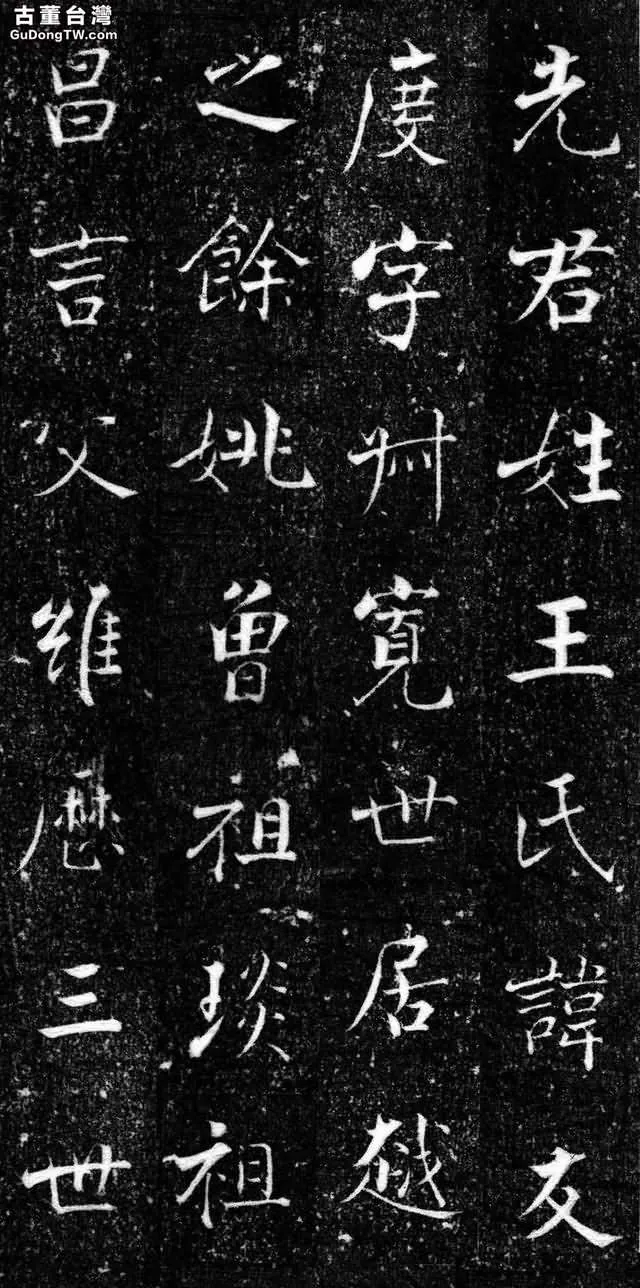 古董台灣
GuDongTW.com
先君姓王氏諱友
度字寬世居越
之餘姚曾祖琰祖
昌言父維歷三世